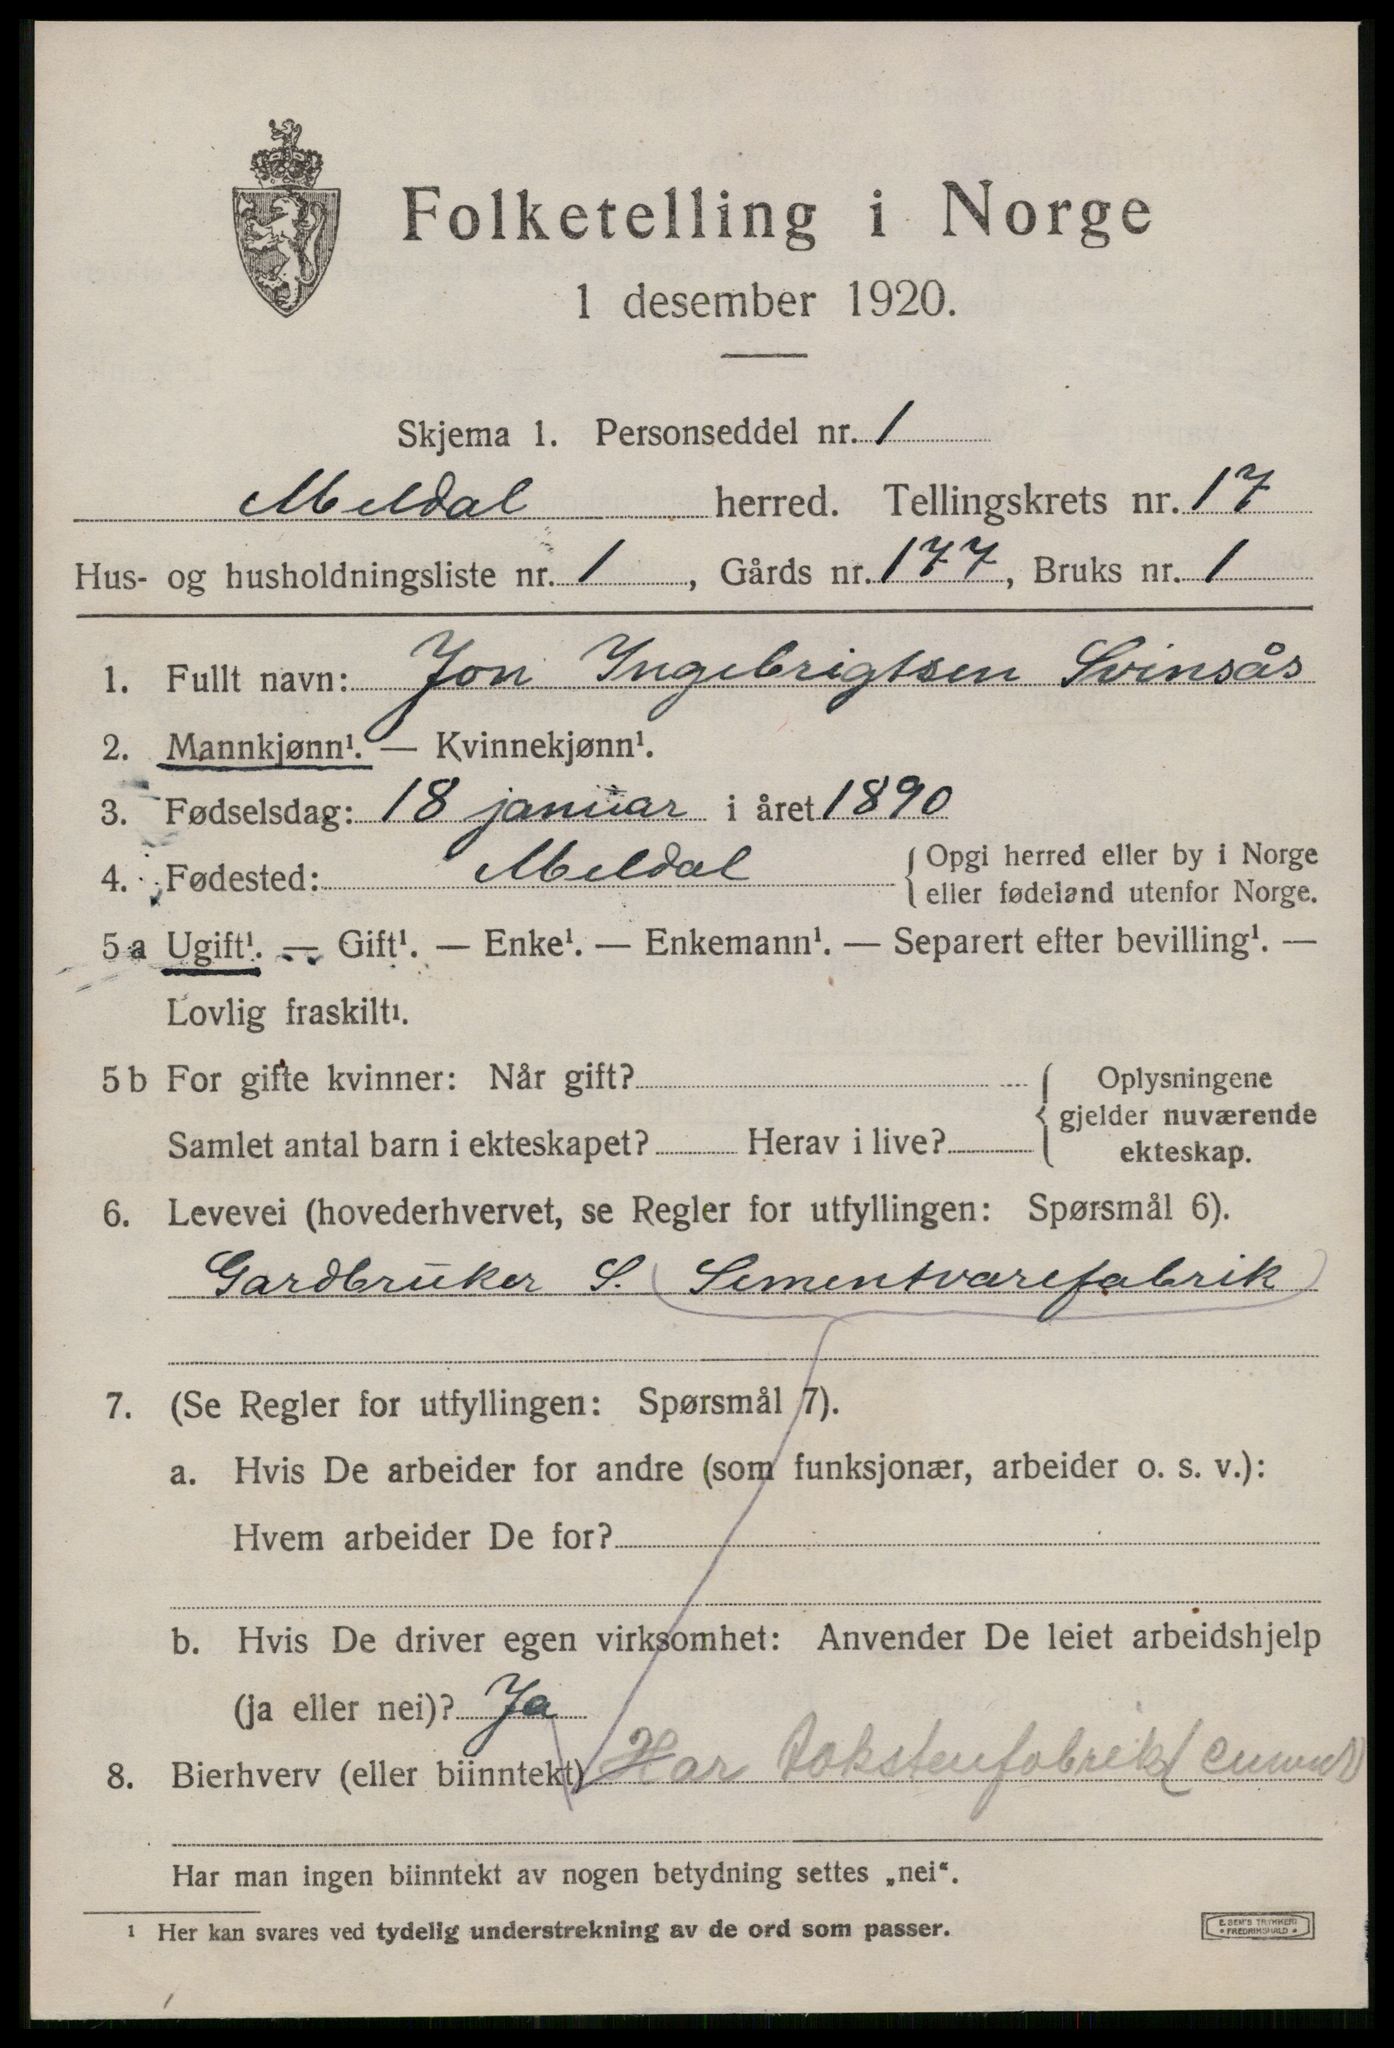 Folketelling i Norge
1 desember 1920.
Skjema 1. Personseddel nr. 1
Meldal herred. Tellingskrets nr. 17
Hus- og husholdningsliste nr. 1, Gårds nr. 177, Bruks nr. 1
1. Fullt navn: Jon Ingebrigtsen Svinsås
2. Mannkjønn¹. — Kvinnekjønn¹.
3. Fødselsdag: 18 januar i året 1890
4. Fødested: Meldal
Opgi herred eller by i Norge
eller fødeland utenfor Norge.
5a Ugift¹. — Gift¹. — Enke¹. — Enkemann¹. — Separert efter bevilling¹. —
Lovlig fraskilt¹.
5b For gifte kvinner: Når gift?
Samlet antal barn i ekteskapet? Herav i live?
Oplysningene
gjelder nuværende
ekteskap.
6. Levevei (hovederhvervet, se Regler for utfyllingen: Spørsmål 6).
Gardbruker S. (Sementvarefabrik)
7. (Se Regler for utfyllingen: Spørsmål 7).
a. Hvis De arbeider for andre (som funksjonær, arbeider o. s. v.):
Hvem arbeider De for?
b. Hvis De driver egen virksomhet: Anvender De leiet arbeidshjelp
(ja eller nei)? Ja
8. Bierhverv (eller biinntekt) Har takstenfabrik
Har man ingen biinntekt av nogen betydning settes „nei“.
¹ Her kan svares ved tydelig understrekning av de ord som passer.
E. SEM'S TRYKKERI
FREDRIKSHALD